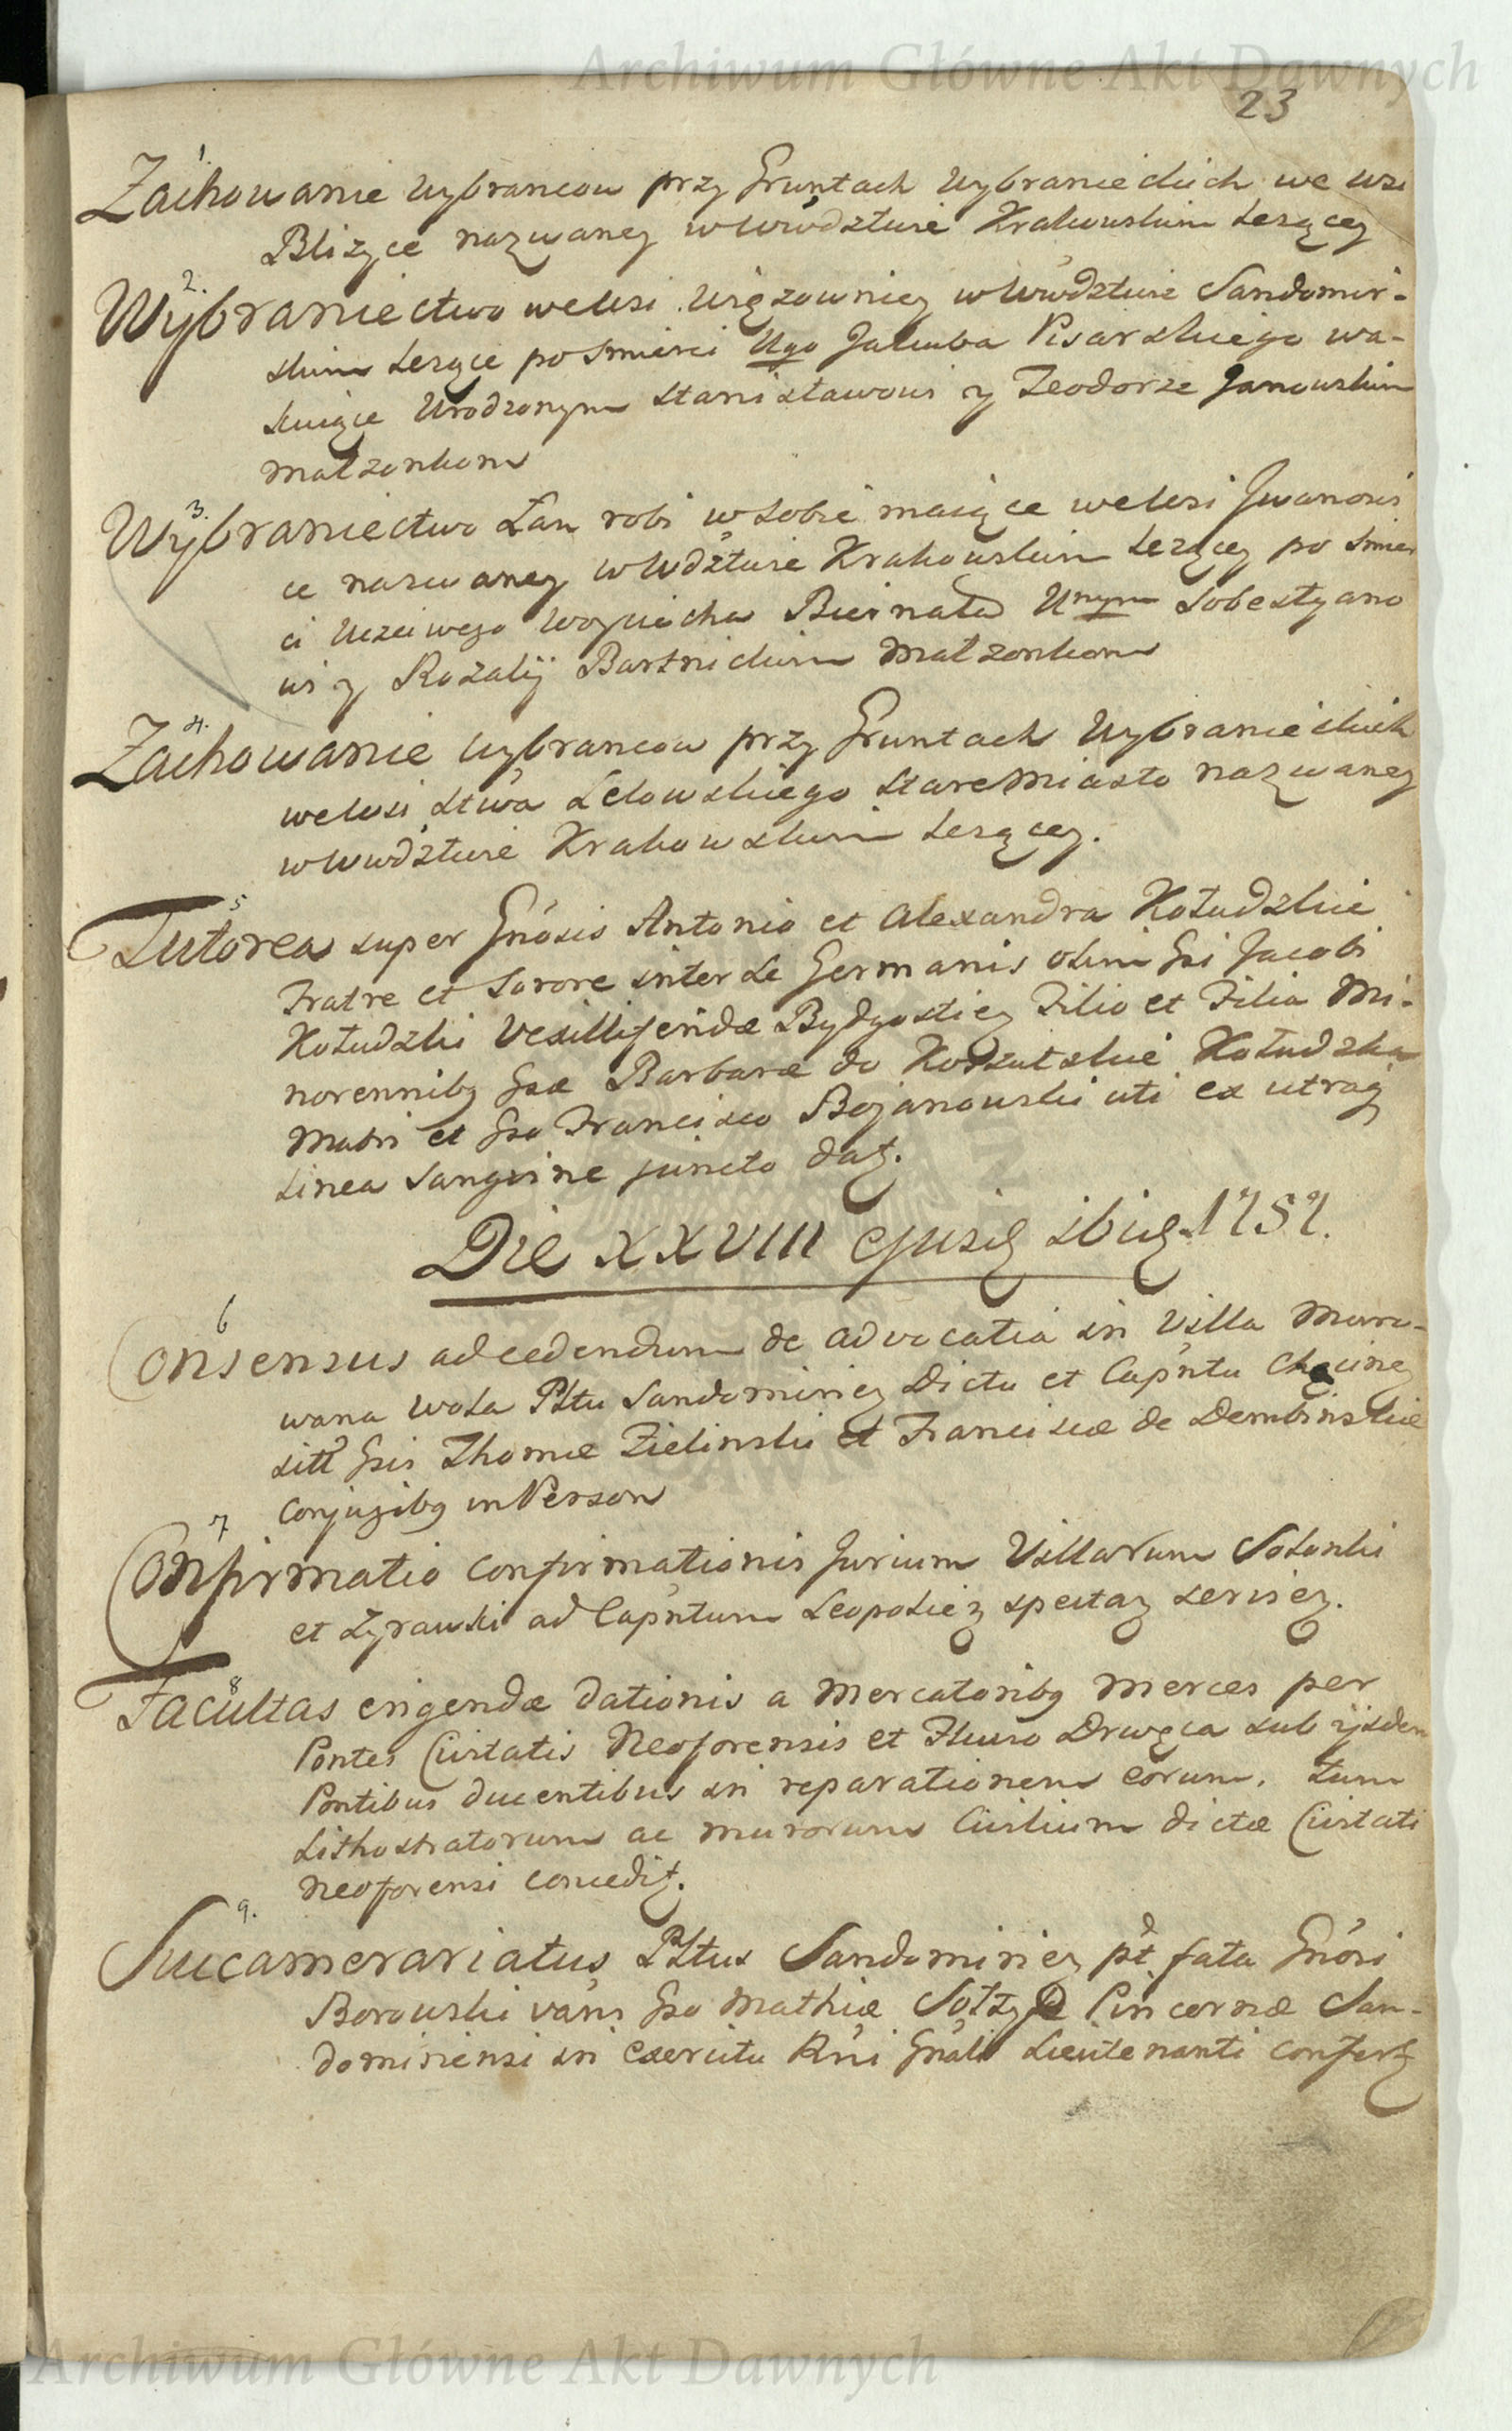 Archiwum Główne Akt Dawnych
23
1.
Zachowanie wybrancow przy Gruntach Wybranieckich we wsi
Bliżyce nazwaney w Wwdztwie Krakowskim Lezącey
2.
Wybraniectwo we Wsi Wiązowniey w Wwdztwie Sandomir-
skim Lezące po Smierci Ugo Jakuba Pisarskiego wa-
kuiące Urodzonym Stanisławowi y Teodorze Janowskim
Małzonkom
3.
Wybraniectwo Łan robi w sobie maiące we Wsi Jwanowi
ce nazwaney w Wdztwie Krakowskim Lezącey po Smier
ci Uczciwego Woyciecha Biernata Unym Sobestyano
wi y Rozalij Bartnickim Małzonkom
4.
Zachowanie wybrancow przy Gruntach Wybranieckich
we Wsi Stwa Lelowskiego Stare Miasto nazwaney
w Wwdztwie Krakowskim Lezącey.
5
Tutorea super Gnosis Antonio et Alexandra Kołudzkie
Fratre et Sorore inter se Germanis olim Gsi Jacobi
Kołudzki Vexilliferidæ Bydgostien Filio et Filia Mi-
norennibg Gsæ Barbaræ de Kossutskie Kołudzka
Matri et Gso Francisco Bojanowski uti ex utraq
Linea Sangvine juncto datq.
Die XXVIII ejusd ibid 1757.
6
Consensus ad cedendum de advocatia in Villa Muro-
wana Wola Pltu Sandomirien Dicta et Capntu Chęcinen
sitt Gsis Thomæ Zielinski et Franciscæ de Dembinskie
Conjugibg in Person
7
Confirmatio Confirmationis Jurium Villarum Sokolniki
et Zyrawki ad Capntum Leopolien spectan serwien.
8
Facultas exigendæ dationis a Mercatoribg Merces per
Pontes Civitatis Neoforensis et Fluvio Drwęca sub ijsdem
Pontibus ducentibus in reparationem eorum, tum
Lithostratorum ac murorum Civilium dictæ Civitati
Neoforensi conceditq.
9.
Succamerariatus Pltus Sandomirien pt fata Gnosi
Borowski vans Gso Mathiæ Sołtyk Pincernæ San-
domiriensi in Exercitu Rni Gnali Lieutenanti Confertq
Archiwum Główne Akt Dawnych